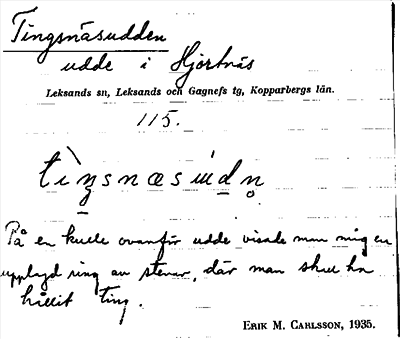 Tingsnäsudden
udde i Hjortnäs
Leksands sn, Leksands och Gagnefs tg, Kopparbergs län.
115.
tìŋsnæsùdn̥
På en kulle ovanför udde visade man mig en
upplagd ring av stenar, där man skul ha
hållit ting.
ERIK M. CARLSSON, 1935.